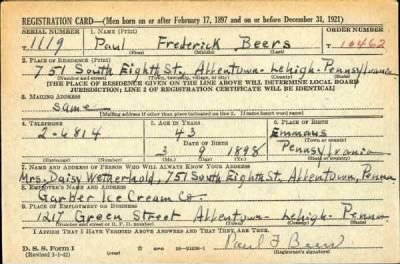 REGISTRATION CARD—(Men born on or after February 17, 1897 and on or before December 31, 1921)
SERIAL NUMBER 1. NAME (Print) ORDER NUMBER
1119 Paul Frederick Beers 10462
(First) (Middle) (Last)
2. PLACE OF RESIDENCE (Print)
751 South Eighth St. Allentown- Lehigh- Pennsylvania
(Number and street) (Town, township, village, or city) (County) (State)
[THE PLACE OF RESIDENCE GIVEN ON THE LINE ABOVE WILL DETERMINE LOCAL BOARD
JURISDICTION; LINE 2 OF REGISTRATION CERTIFICATE WILL BE IDENTICAL]
3. MAILING ADDRESS
same
[Mailing address if other than place indicated on line 2. If same insert word same]
4. TELEPHONE 5. AGE IN YEARS 6. PLACE OF BIRTH
2-6814 43 Emmaus
DATE OF BIRTH (Town or county)
3 9 1898 Pennsylvania
(Exchange) (Number) (Mo.) (Day) (Yr.) (State or country)
7. NAME AND ADDRESS OF PERSON WHO WILL ALWAYS KNOW YOUR ADDRESS
Mrs. Daisy Wetherhold, 751 South Eighth St, Allentown, Penna
8. EMPLOYER'S NAME AND ADDRESS
Garber Ice Cream Co.
9. PLACE OF EMPLOYMENT OR BUSINESS
1217 Green Street Allentown- Lehigh- Penna
(Number and street or R. F. D. number) (Town) (County) (State)
I AFFIRM THAT I HAVE VERIFIED ABOVE ANSWERS AND THAT THEY ARE TRUE.
D. S. S. Form 1
(Revised 1-1-42) (over)
Paul F Beers
(Registrant's signature)